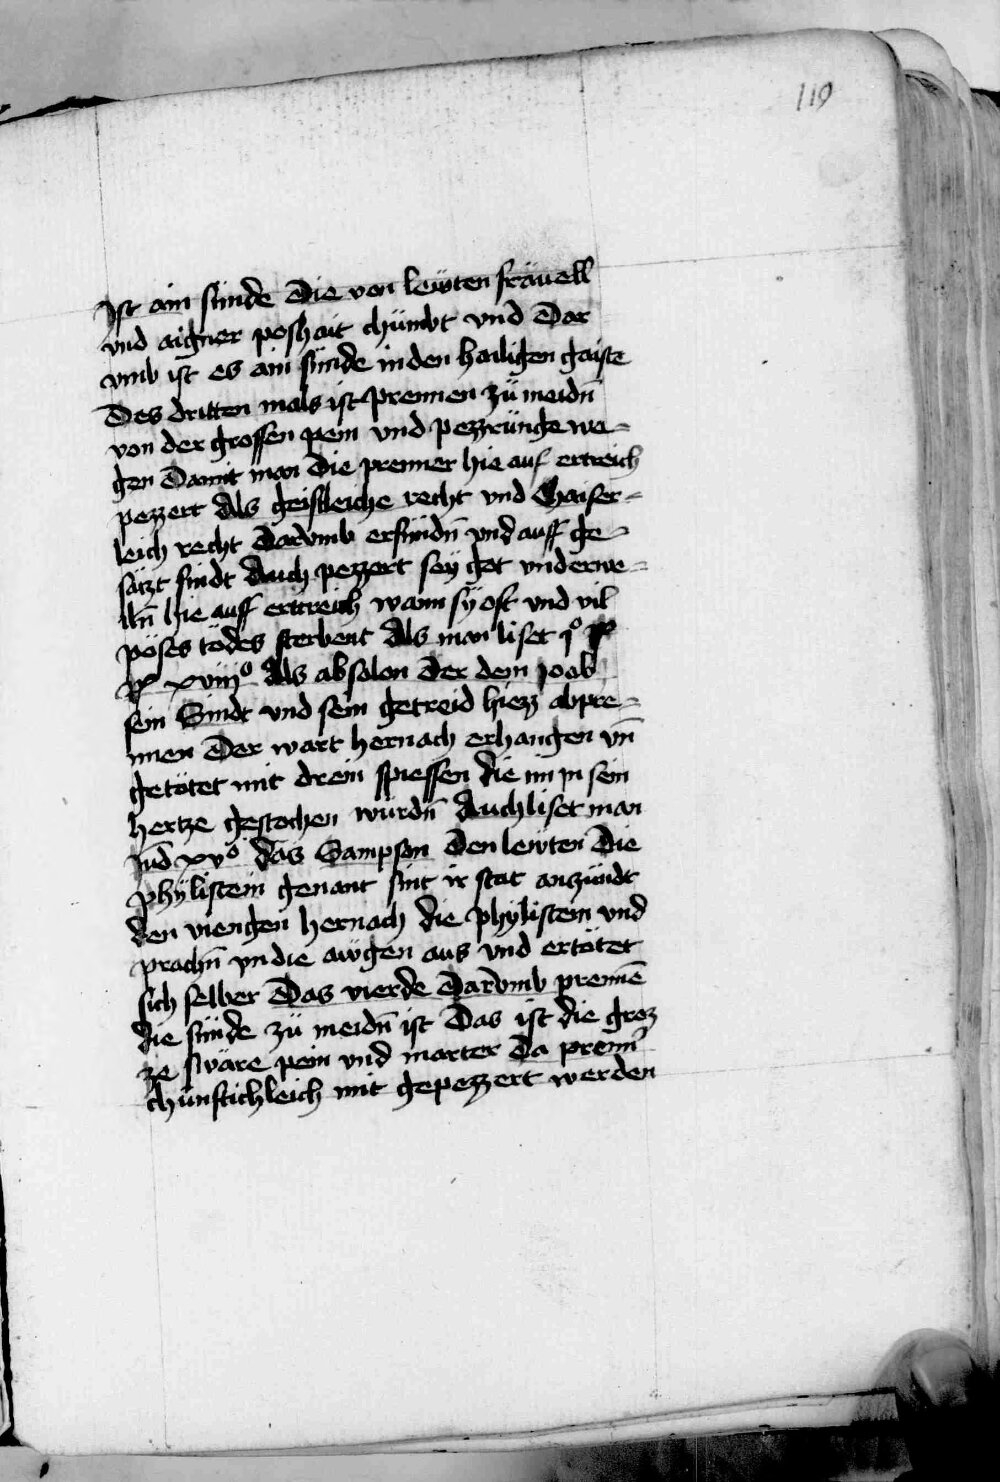 119
Ist ain sünde Die von lewten fräuell
vnd aigner poshait chümbt vnd Dar
vmb ist es ain sünde in den hailigen gaiste
Des dritten mals ist prennen zü meidn̄
von der grossen pein vnd pezzrünge we-
gen Damit man die prenner hie auf ertreich
pezzert Als geistleiche recht vnd Chaiser-
leich recht Darvmb erfündn̄ vnd auff ge-
säzt sindt Auch pezzert sey got vnderwe-
iln̄ hie auff erttreich wann sy oft vnd vil
pöses tödes sterbent Als man liset
xviijº Als absolon Der dem Joab
sein Sindt vnd sein getreid hiezz abpre-
nnen Der wart hernach erhangen vn̄
getötet mit drein spiessen die im in sein
hertze gestochen würdn̄ Auch liset man
Jud̄ xvº das Sampson Den lewten Die
phylistein genant sint ir stat anzündt
den viengen hernach die phylistein vnd
prachn̄ yn die awgen aus vnd ertötet
sich selber Das vierde Darvmb prennē
die sünde zü meidn̄ ist Das ist die groz
ze swäre pein vnd marter Da prenn̄
chünftichleich mit gepezzert werden